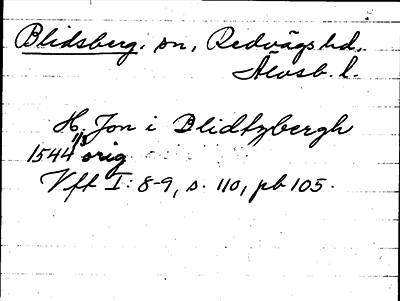 Blidsberg. sn, Redvägs hd.
Älvsb. l.
H. Jon i Blidtzbergh
1544 1/3 orig
Vft I: 8-9, s. 110, pb 105.